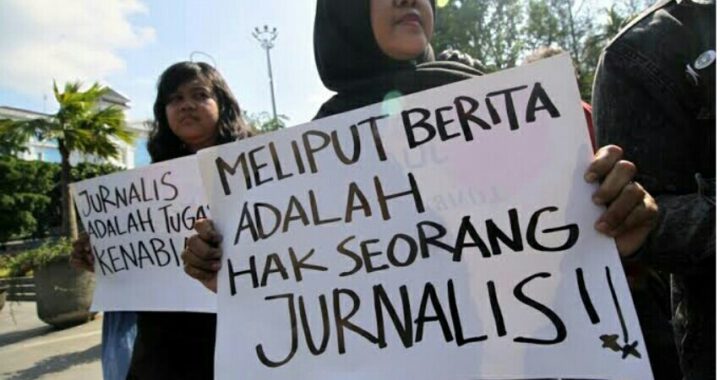 JURNALIS
ADALAH TUGAS
KENABIAN
MELIPUT BERITA
ADALAH
HAK SEORANG
JURNALIS!!